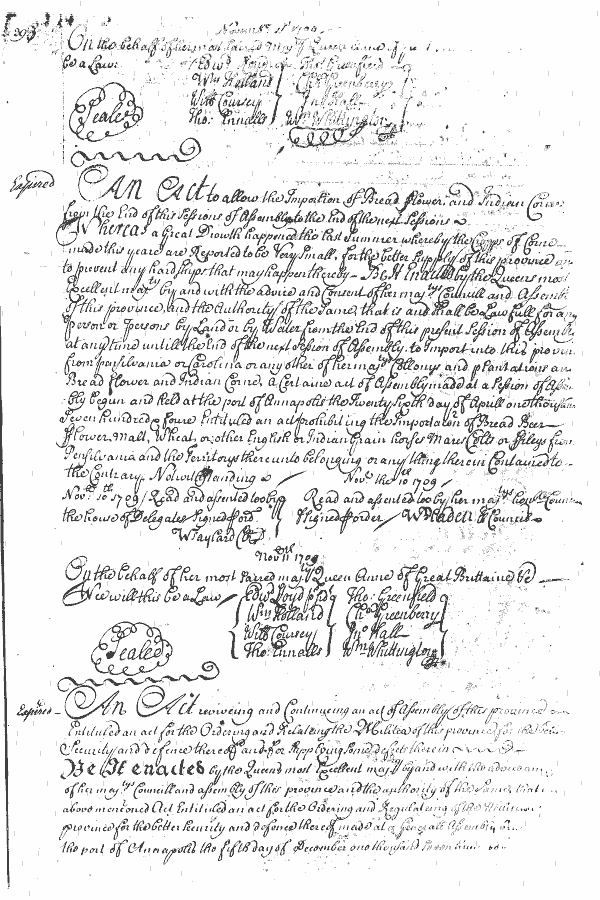 393
Novembr 11th 1709
On the behalf of her most sacred majty Queen Anne of
be a Law
Edwd Loyd Tho: Greenfield
Wm Holland Chs Greenberry
Sealed
Willm Coursey Jno Hall
Tho: Ennalls Wm Whittington
Expired
An Act to allow the Importion of Bread flower and Indian Corne
from the End of this Sessions of Assembly to the End of the next Sessions
Whereas a Great Drowth happened the last Summer whereby the Cropps of Corne
made this yeare are Reported to be Very Small, for the better Supply of this province
to prevent any hardships that may happen thereby Be It Enacted by the Queens most
Excellent majty by and with the advice and Consent of her majtys Councill and Assembly
of this province, and the Authority of the Same, that is and shall be Lawfull for any
person or persons by Land or by Water from the End of this present Session of Assem
at any time untill the End of the next Session of Assembly to Import into this provin
from pensilvania or Carolina or any other of her majtys Collonys and plantations an
Bread flower and Indian Corne, A Certaine act of Assembly made at a Session of Asse
bly begun and held at the port of Annapolis the Twenty Sixth day of Aprill one thousan
Seven hundred & foure Entituled an act prohibiting the Importacon of Bread Beer
flower, Malt, Wheat, or other English or Indian Grain horses Mares Colts or filleys from
Pensilvania and the Territorys thereunto belonging or any thing therein Contained to
the Contrary Notwithstanding
Novr the 10th 1709
Novr th 10th 1709 / Read and assented too by Read and assented too by her majtys
the house of Delegates Signed p ord Signed p order W Bladen Cl Councll
W Taylard
Novr 11th 1709
On the behalf of her most sacred majty Queen Anne of Great Brittaine &c
We will this be a Law
Edwd Loyd Tho: Greenfield
Wm Holland Chs Greenberry
Sealed
Willm Coursey Jno Hall
Tho: Ennalls Wm Whittington
Expired
An Act reviveing and Continueing an act of Assembly of this province
Entituled an act for the Ordering and Relateing the Militea of this province for the
Security and defence thereof and for Supplying Some defects therein
Be It enacted by the Queens most Excellent majty by and with the advice
of her majtys Councill and assembly of this province and the authority of the Same, that
above mentioned Act Entituled an act for the Ordering and Regulateing of the
province for the better Security and defence thereof made at a Generall Assembly
the port of Annapolis the fifth day of December one thousand seven